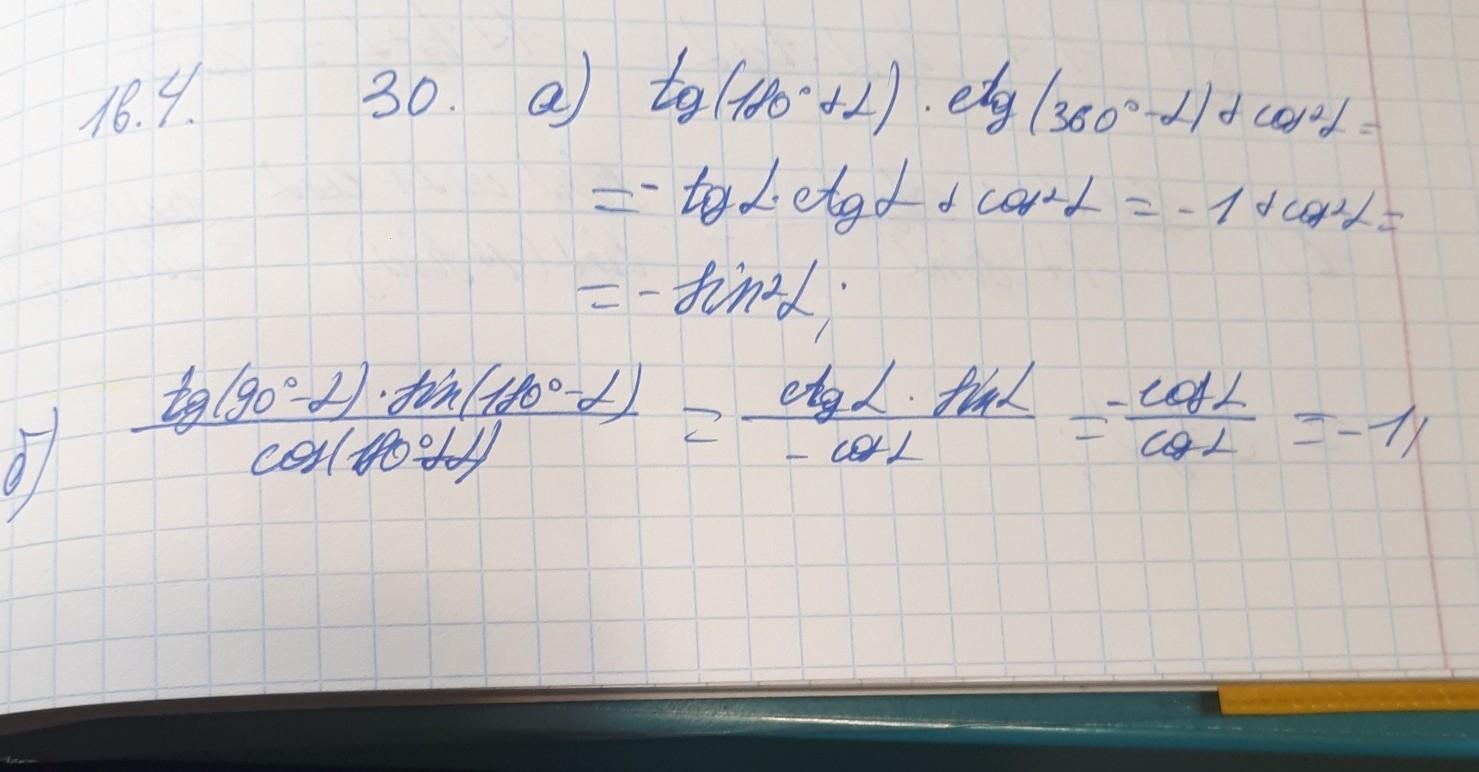 18.4. 30. а) tg(180° + α) · ctg(360° - α) + cos²α =
= - tg α · ctg α + cos²α = - 1 + cos²α =
= - sin²α;
б) tg(90° - α) · sin(180° - α) / cos(180° + α) = ctg α · sin α / - cos α = - cos α / cos α = - 1;